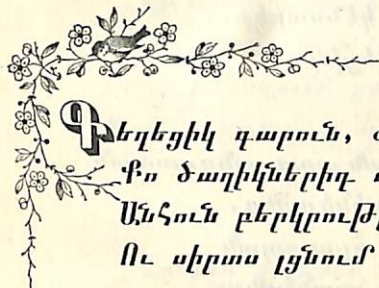 Գեղեցիկ գարուն,
Քո ծաղիկներիդ
Անհուն բերկրութ
Ու սիրտս լցնում